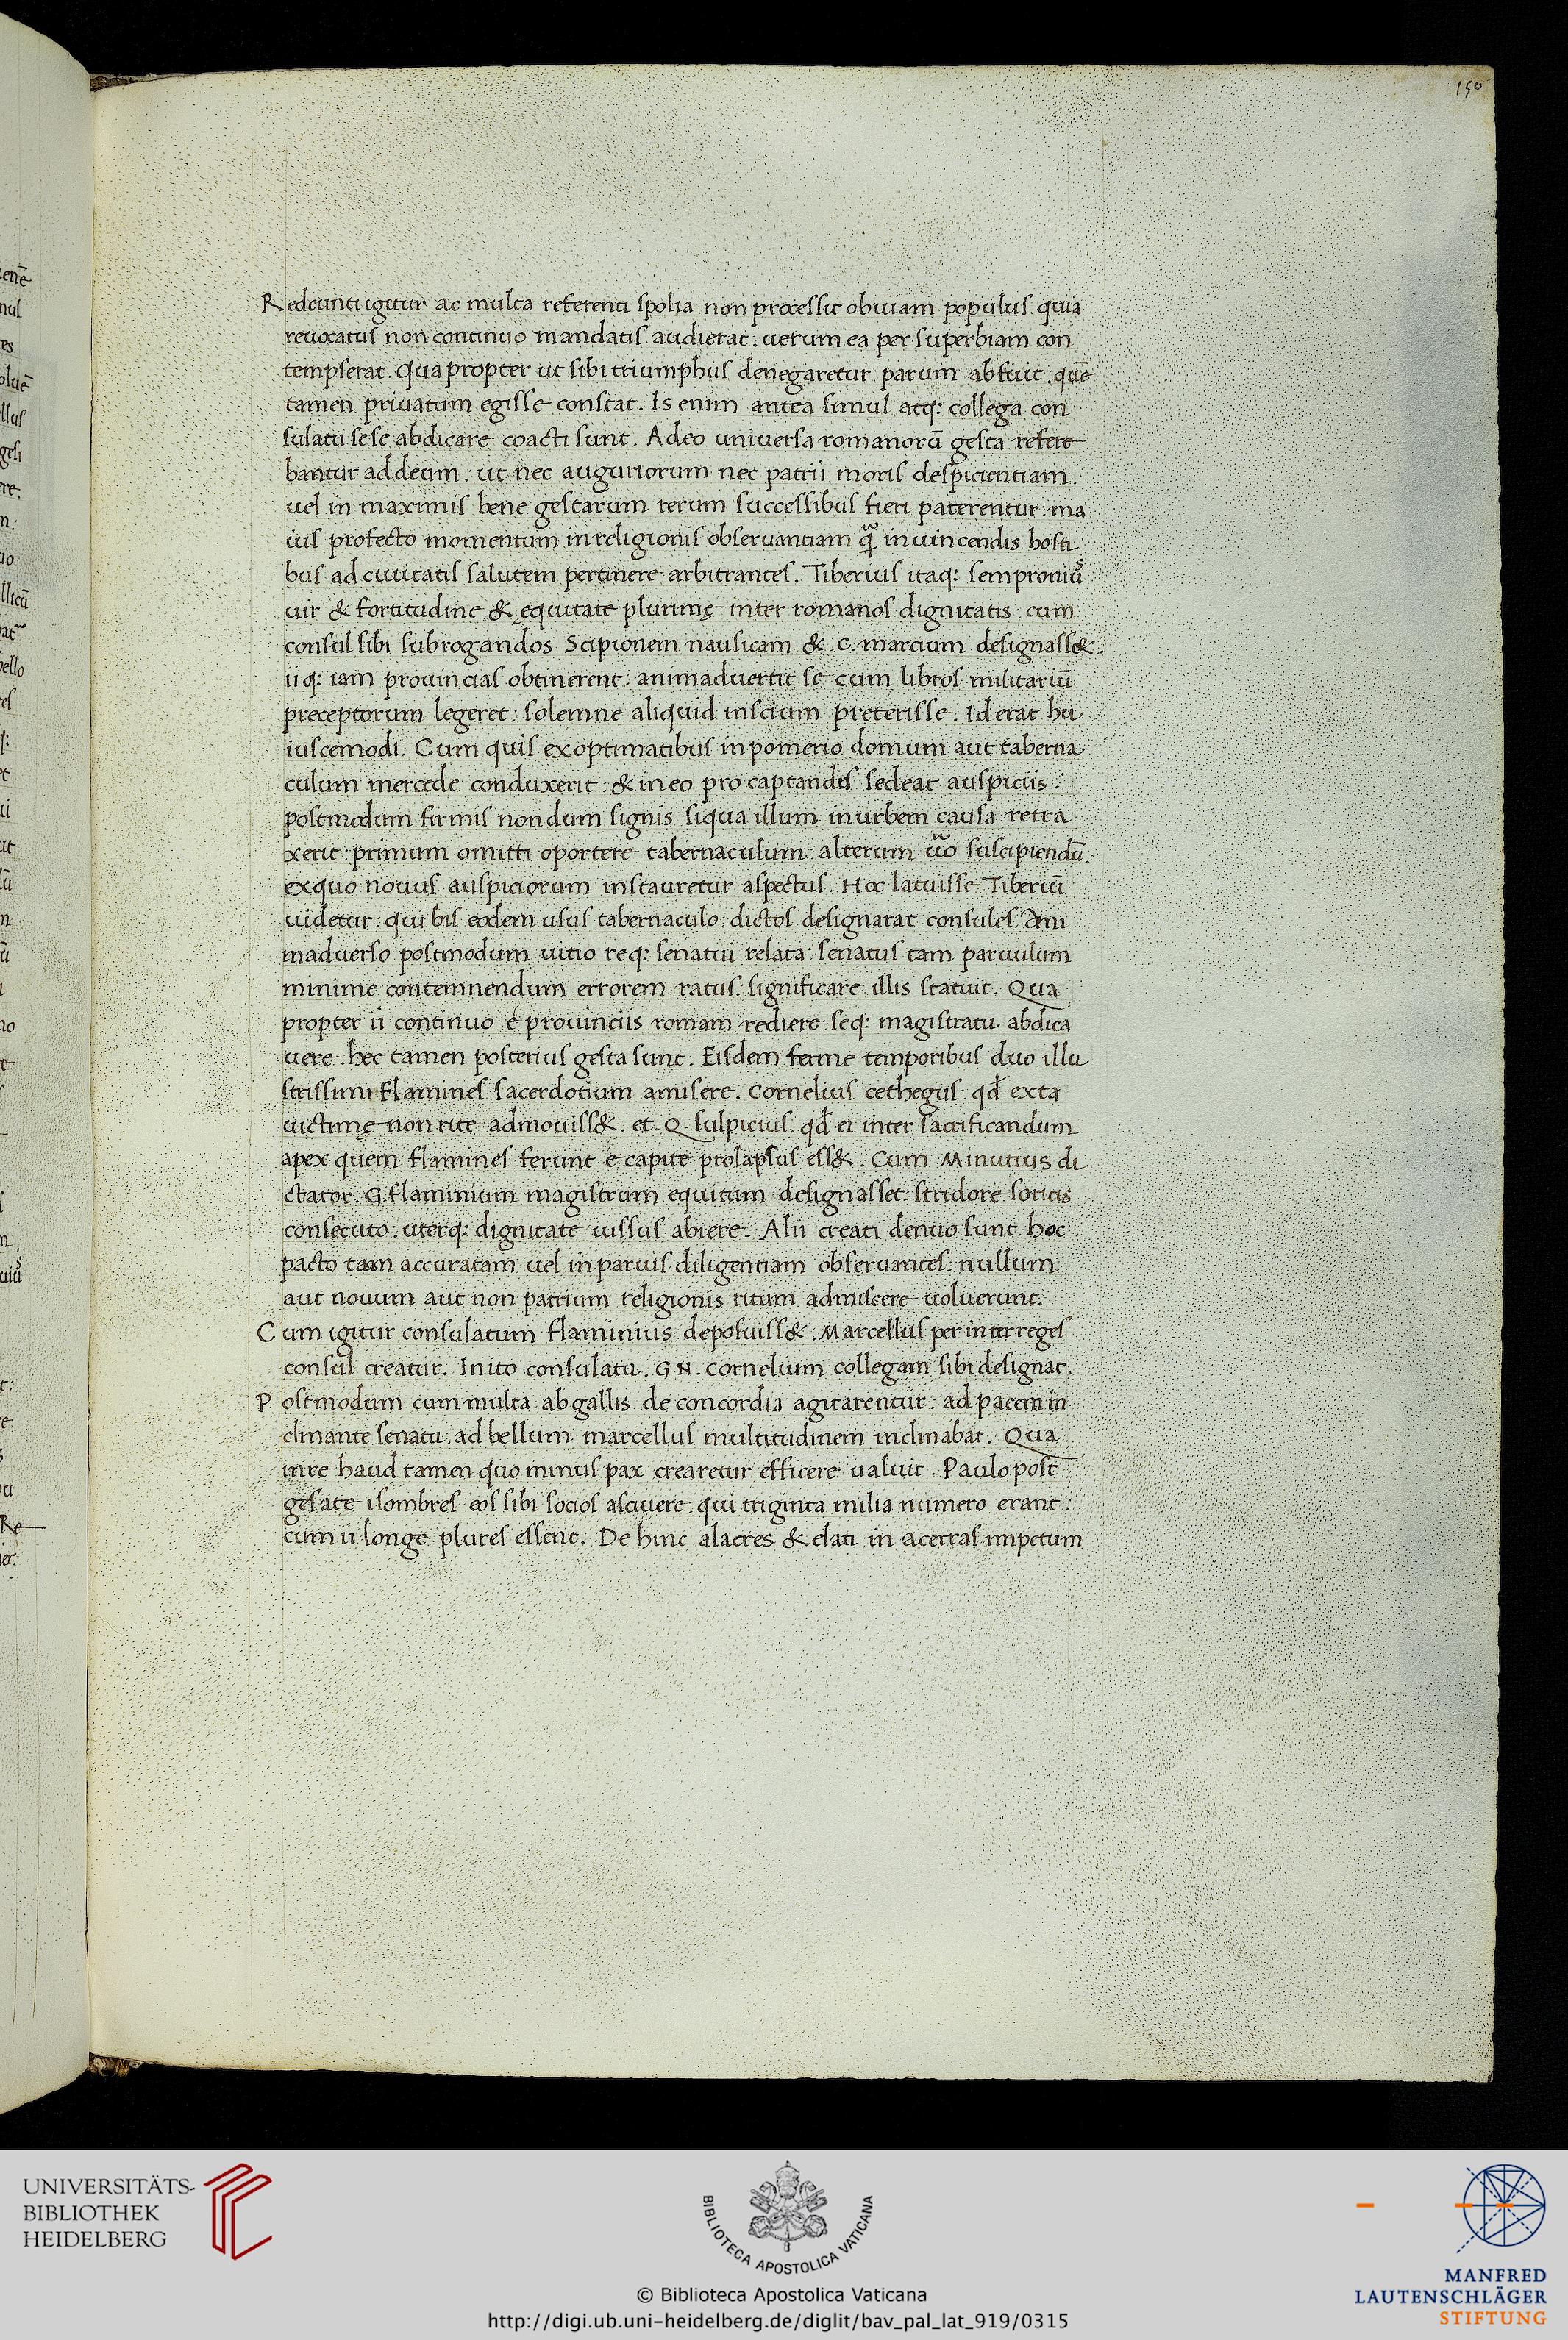 150
Redeunti igitur ac multa referenti spolia non processit obuiam populus quia
reuocatus non continuo mandatis audierat: uerum ea per superbiam con
tempserat. Quapropter ut sibi triumphus denegaretur parum abfuit. quē
tamen priuatum egisse constat. Is enim antea simul atq: collega con
sulatu sese abdicare coacti sunt. Adeo uniuersa romanorū gesta refere
bantur ad deum: ut nec auguriorum nec patrii moris despicientiam
uel in maximis bene gestarum rerum successibus fieri paterentur: ma
ius profecto momentum in religionis obseruantiam quā in uincendis hosti
bus ad ciuitatis salutem pertinere arbitrantes. Tiberius itaq: semproniu᷒
uir & fortitudine & ęquitate plurimę inter romanos dignitatis cum
consul sibi subrogandos Scipionem nausicam & C. marcium designass&.
iiq: iam prouincias obtinerent: animaduertit se cum libros militariū
preceptorum legeret: solemne aliquid inscium preterisse. Id erat hu
iuscemodi. Cum quis ex optimatibus in pomerio domum aut taberna
culum mercede conduxerit: & in eo pro captandis sedeat auspiciis:
postmodum firmis nondum signis siqua illum in urbem causa retra
xerit: primum omitti oportere tabernaculum: alterum uo suscipiendū.
ex quo nouus auspiciorum instauretur aspectus. Hoc latuisse Tiberiū
uidetur: qui bis eodem usus tabernaculo: dictos designarat consules. Ani
maduerso postmodum uitio req: senatui relata: senatus tam paruulum
minime contemnendum errorem ratus: significare illis statuit. Qua
propter ii continuo e prouinciis romam rediere seq: magistratu abdica
uere. hec tamen posterius gesta sunt. Eisdem ferme temporibus duo illu
strissimi Flamines sacerdotium amisere. Cornelius cethegus qđ exta
uictimę non rite admouiss&. et. Q. sulpicius. qđ ei inter sacrificandum
apex quem flamines ferunt e capite prolapsus ess&. Cum Minutius di
ctator. G. flaminium magistrum equitum designasset: stridore soricis
consecuto: uterq: dignitate iussus abiere. Alii creati denuo sunt. hoc
pacto tam accuratam uel in paruis diligentiam obseruantes: nullum
aut nouum aut non patrium religionis ritum admiscere uoluerunt.
Cum igitur consulatum flaminius deposuiss&. Marcellus per interreges
consul creatur. Inito consulatu. GN. Cornelium collegam sibi designat.
Postmodum cum multa ab gallis de concordia agitarentur: ad pacem in
clinante senatu: ad bellum marcellus multitudinem inclinabat. Qua
in re haud tamen quo minus pax crearetur efficere ualuit. Paulo post
gesate isombres eos sibi socios asciuere. qui triginta milia numero erant:
cum ii longe plures essent. De hinc alacres & elati in acerras impetum
UNIVERSITÄTS-
BIBLIOTHEK
HEIDELBERG
BIBLIOTECA APOSTOLICA VATICANA
© Biblioteca Apostolica Vaticana
http://digi.ub.uni-heidelberg.de/diglit/bav_pal_lat_919/0315
MANFRED
LAUTENSCHLÄGER
STIFTUNG